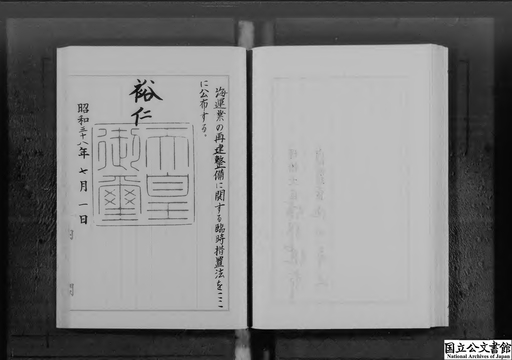 海運業の再建整備に関する臨時措置法をここ
に公布する。
裕仁
天皇
御璽
昭和三十八年七月一日
国立公文書館
National Archives of Japan